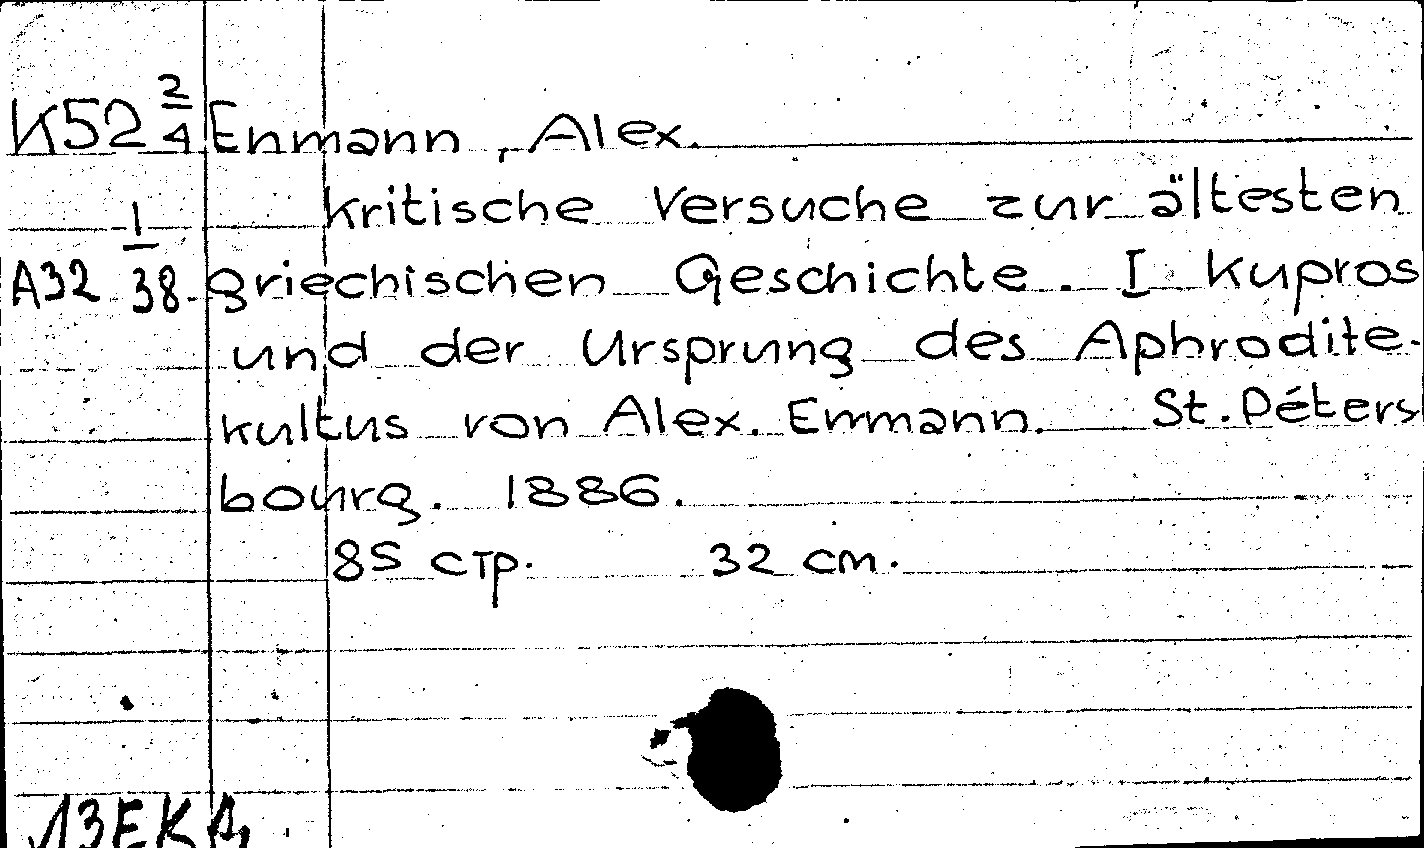 K52 2/4 Enmann, Alex.
kritische Versuche zur ältesten
A32 1/38 griechischen Geschichte. I Kupros
und der Ursprung des Aphrodite-
kultus von Alex. Enmann. St. Péters
bourg. 1886.
85 стр. 32 cm.